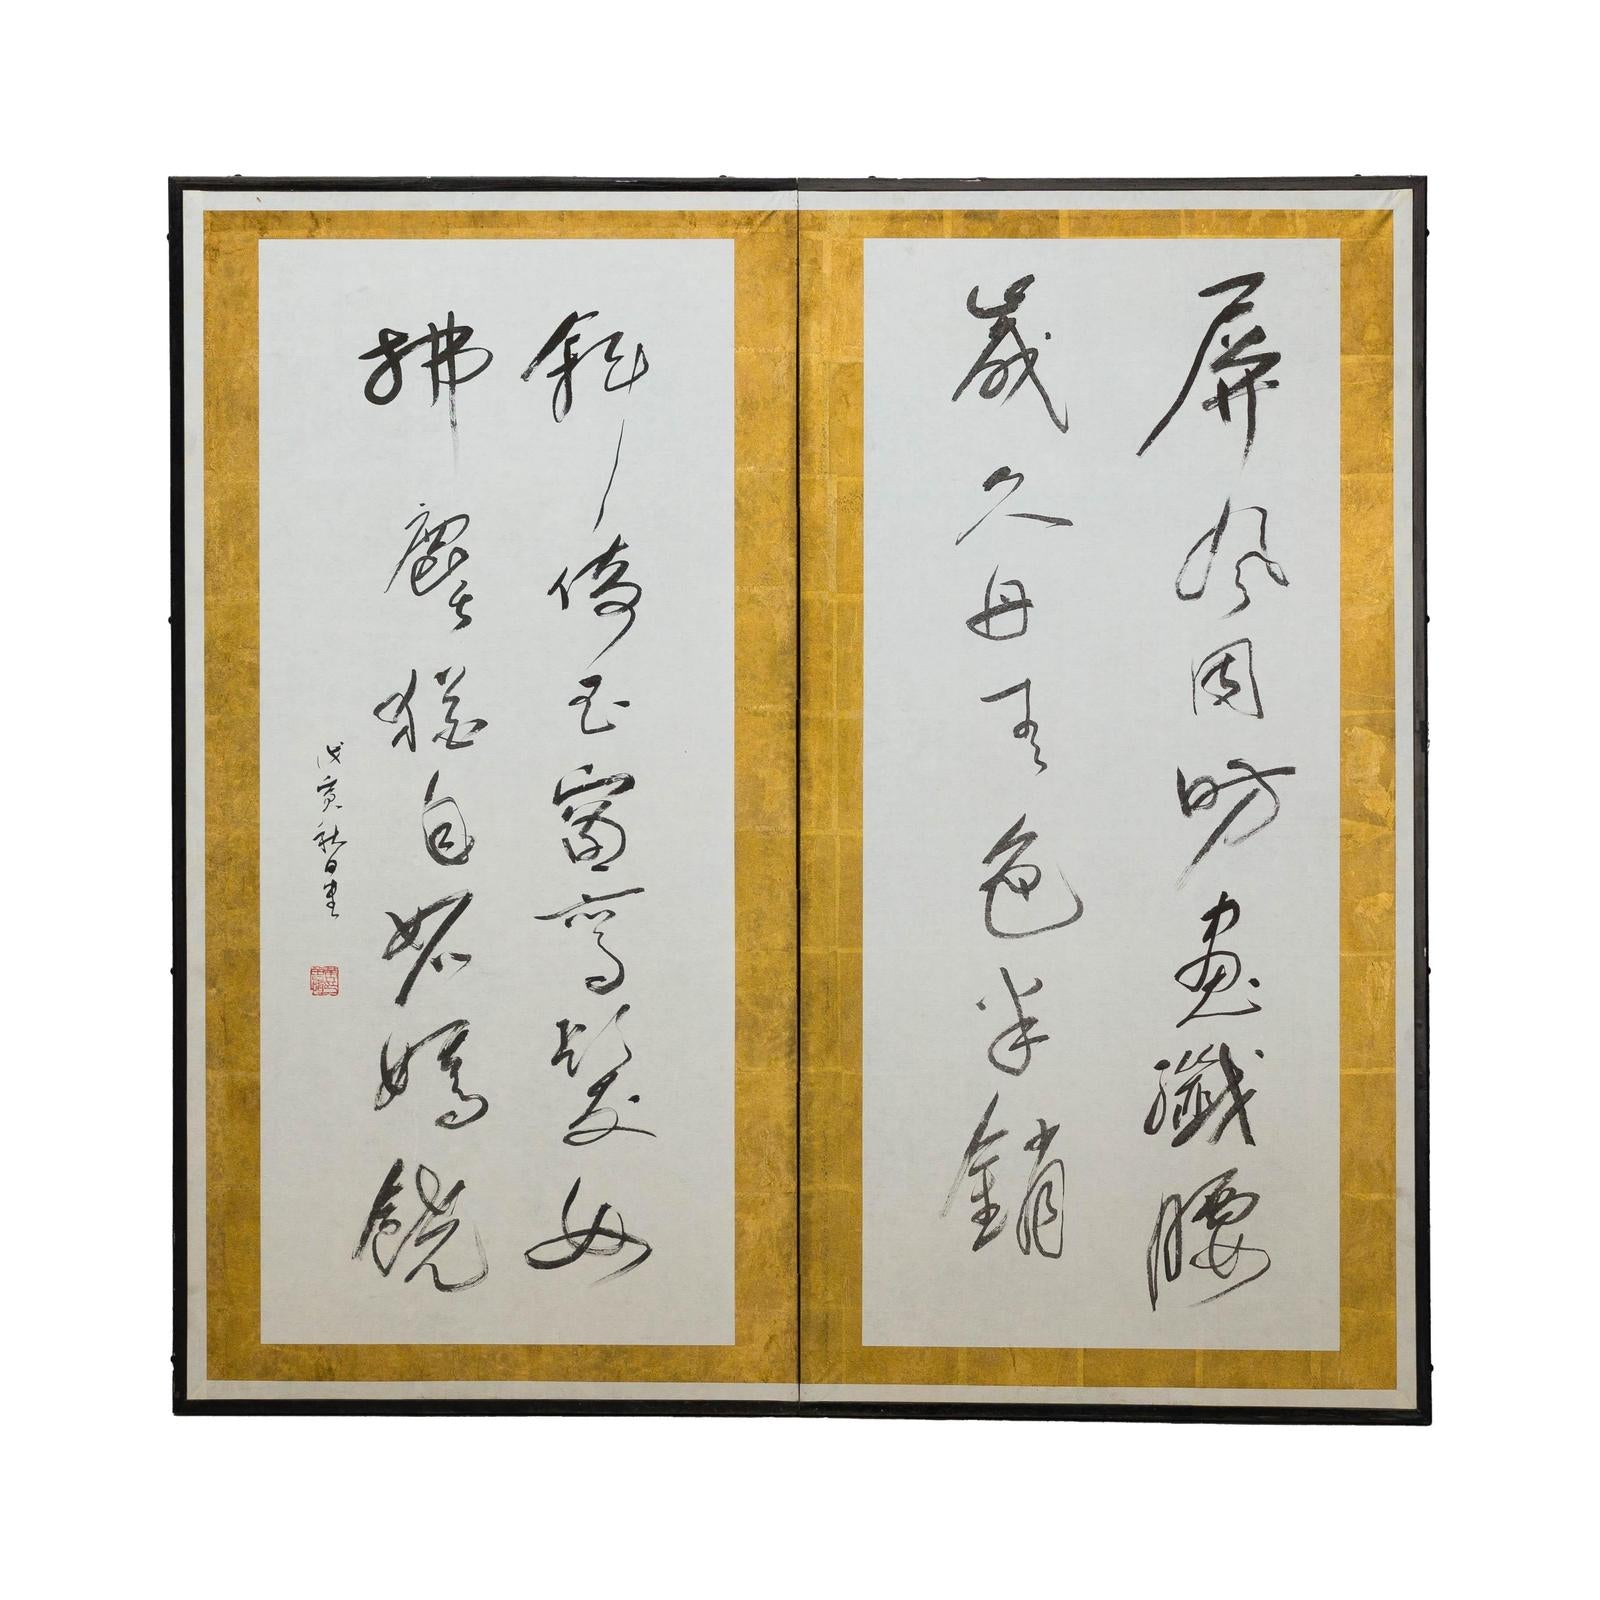 屏風周昉畫纖腰
歲久丹青色半銷
斜倚玉窗鸞髮女
拂塵猶自妬嬌饒
戊寅秋日書